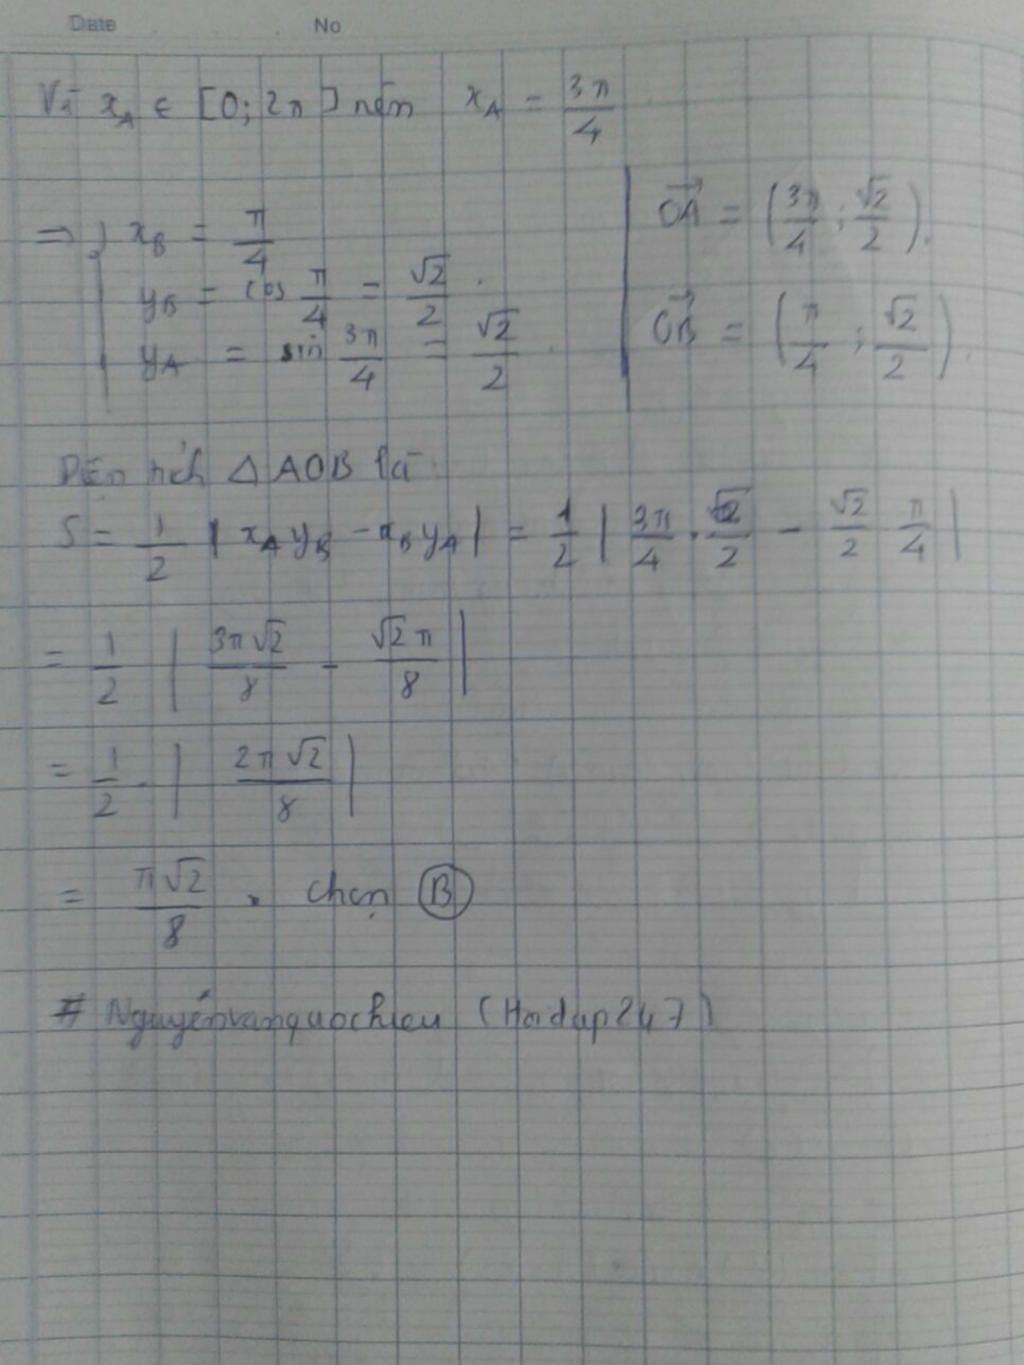 Date No
Vì x_A ∈ [0; 2π] nên x_A = 3π/4
⇒ { x_B = π/4
y_B = cos π/4 = √2/2.
y_A = sin 3π/4 = √2/2.
OA⃗ = (3π/4 ; √2/2).
OB⃗ = (π/4 ; √2/2).
Diện tích Δ AOB là
S = 1/2 | x_A y_B - x_B y_A | = 1/2 | 3π/4 . √2/2 - √2/2 π/4 |
= 1/2 | 3π√2/8 - √2π/8 |
= 1/2 . | 2π√2/8 |
= π√2/8 . chọn (B)
# Nguyễnvanquochieu (Hoidap247)